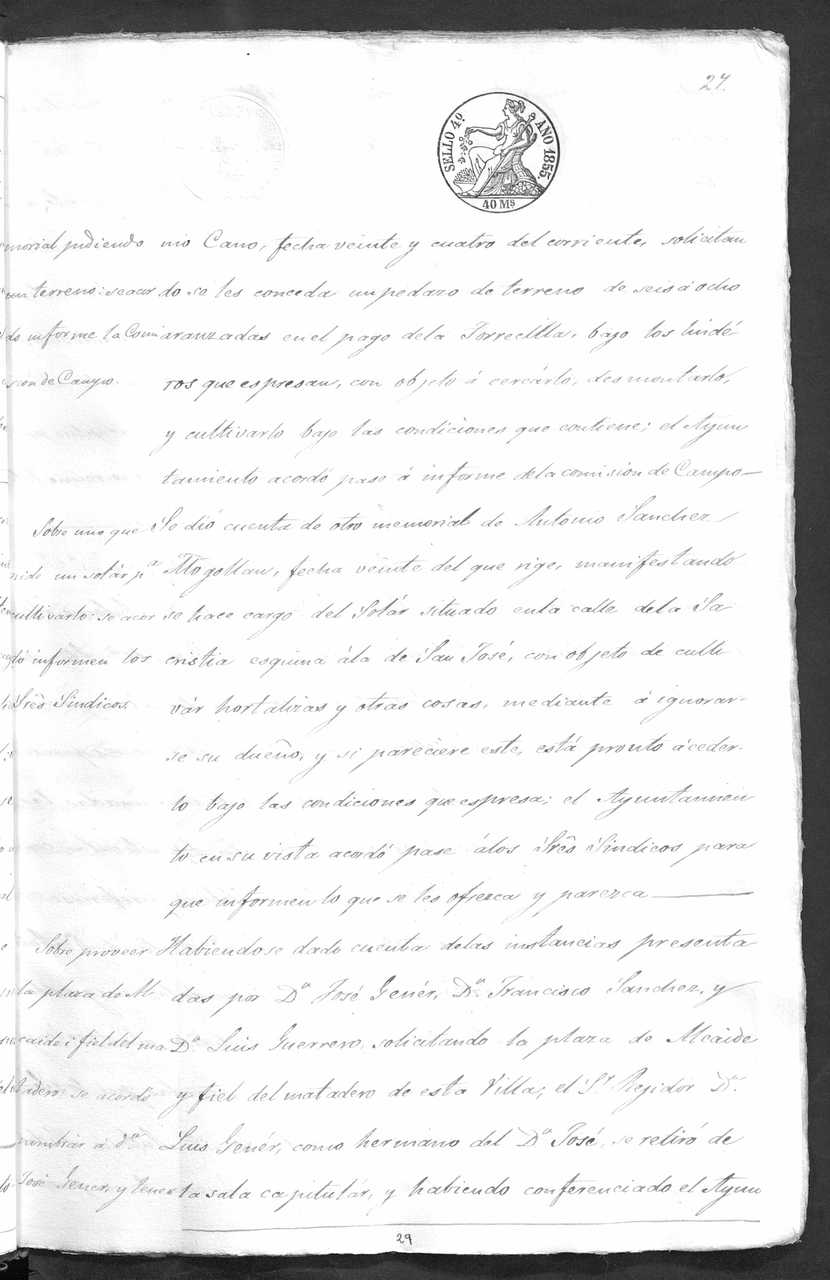 27.
SELLO 4º AÑO 1855.
40 Ms
morial pidiendo
un terreno: se acor
dó informe la Comi
sion de Campo.
nio Cano, fecha veinte y cuatro del corriente, solicitan
do se les conceda un pedazo de terreno de seis á ocho
aranzadas en el pago de la Torrecilla, bajo los lindé
ros que espresan, con objeto á cercárlo, desmontarlo,
y cultivarlo bajo las condiciones que contiene; el Ayun
tamiento acordó pase á informe de la comision de Campo—
Sobre uno que
pide un solár pa
cultivarlo: se acor
dó informen los
Sres Sindicos.
Se dió cuenta de otro memorial de Antonio Sanchez
Mogollan, fecha veinte del que rige, manifestando
se hace cargo del Solár situado en la calle de la Sa
cristia esquina á la de San José, con objeto de culti
vár hortalizas y otras cosas, mediante á ignorar-
se su dueño, y si pareciere este, está pronto á ceder-
lo bajo las condiciones que espresa; el Ayuntamien
to en su vista acordó pase á los Sres Sindicos para
que informen lo que se les ofrezca y parezca
Sobre proveer
la plaza de Al
caide i fiel del ma
tadero: se acordó
nombrar á Dn
José Gener, y tener
Habiendose dado cuenta de las instancias presenta
das por Dn José Genér, Dn Francisco Sanchez, y
Dn Luis Guerrero, solicitando la plaza de Alcaide
y fiel del matadero de esta Villa; el Sr Rejidor Dn
Luis Genér, como hermano del Dn José, se retiró de
la sala capitulár, y habiendo conferenciado el Ayun
29